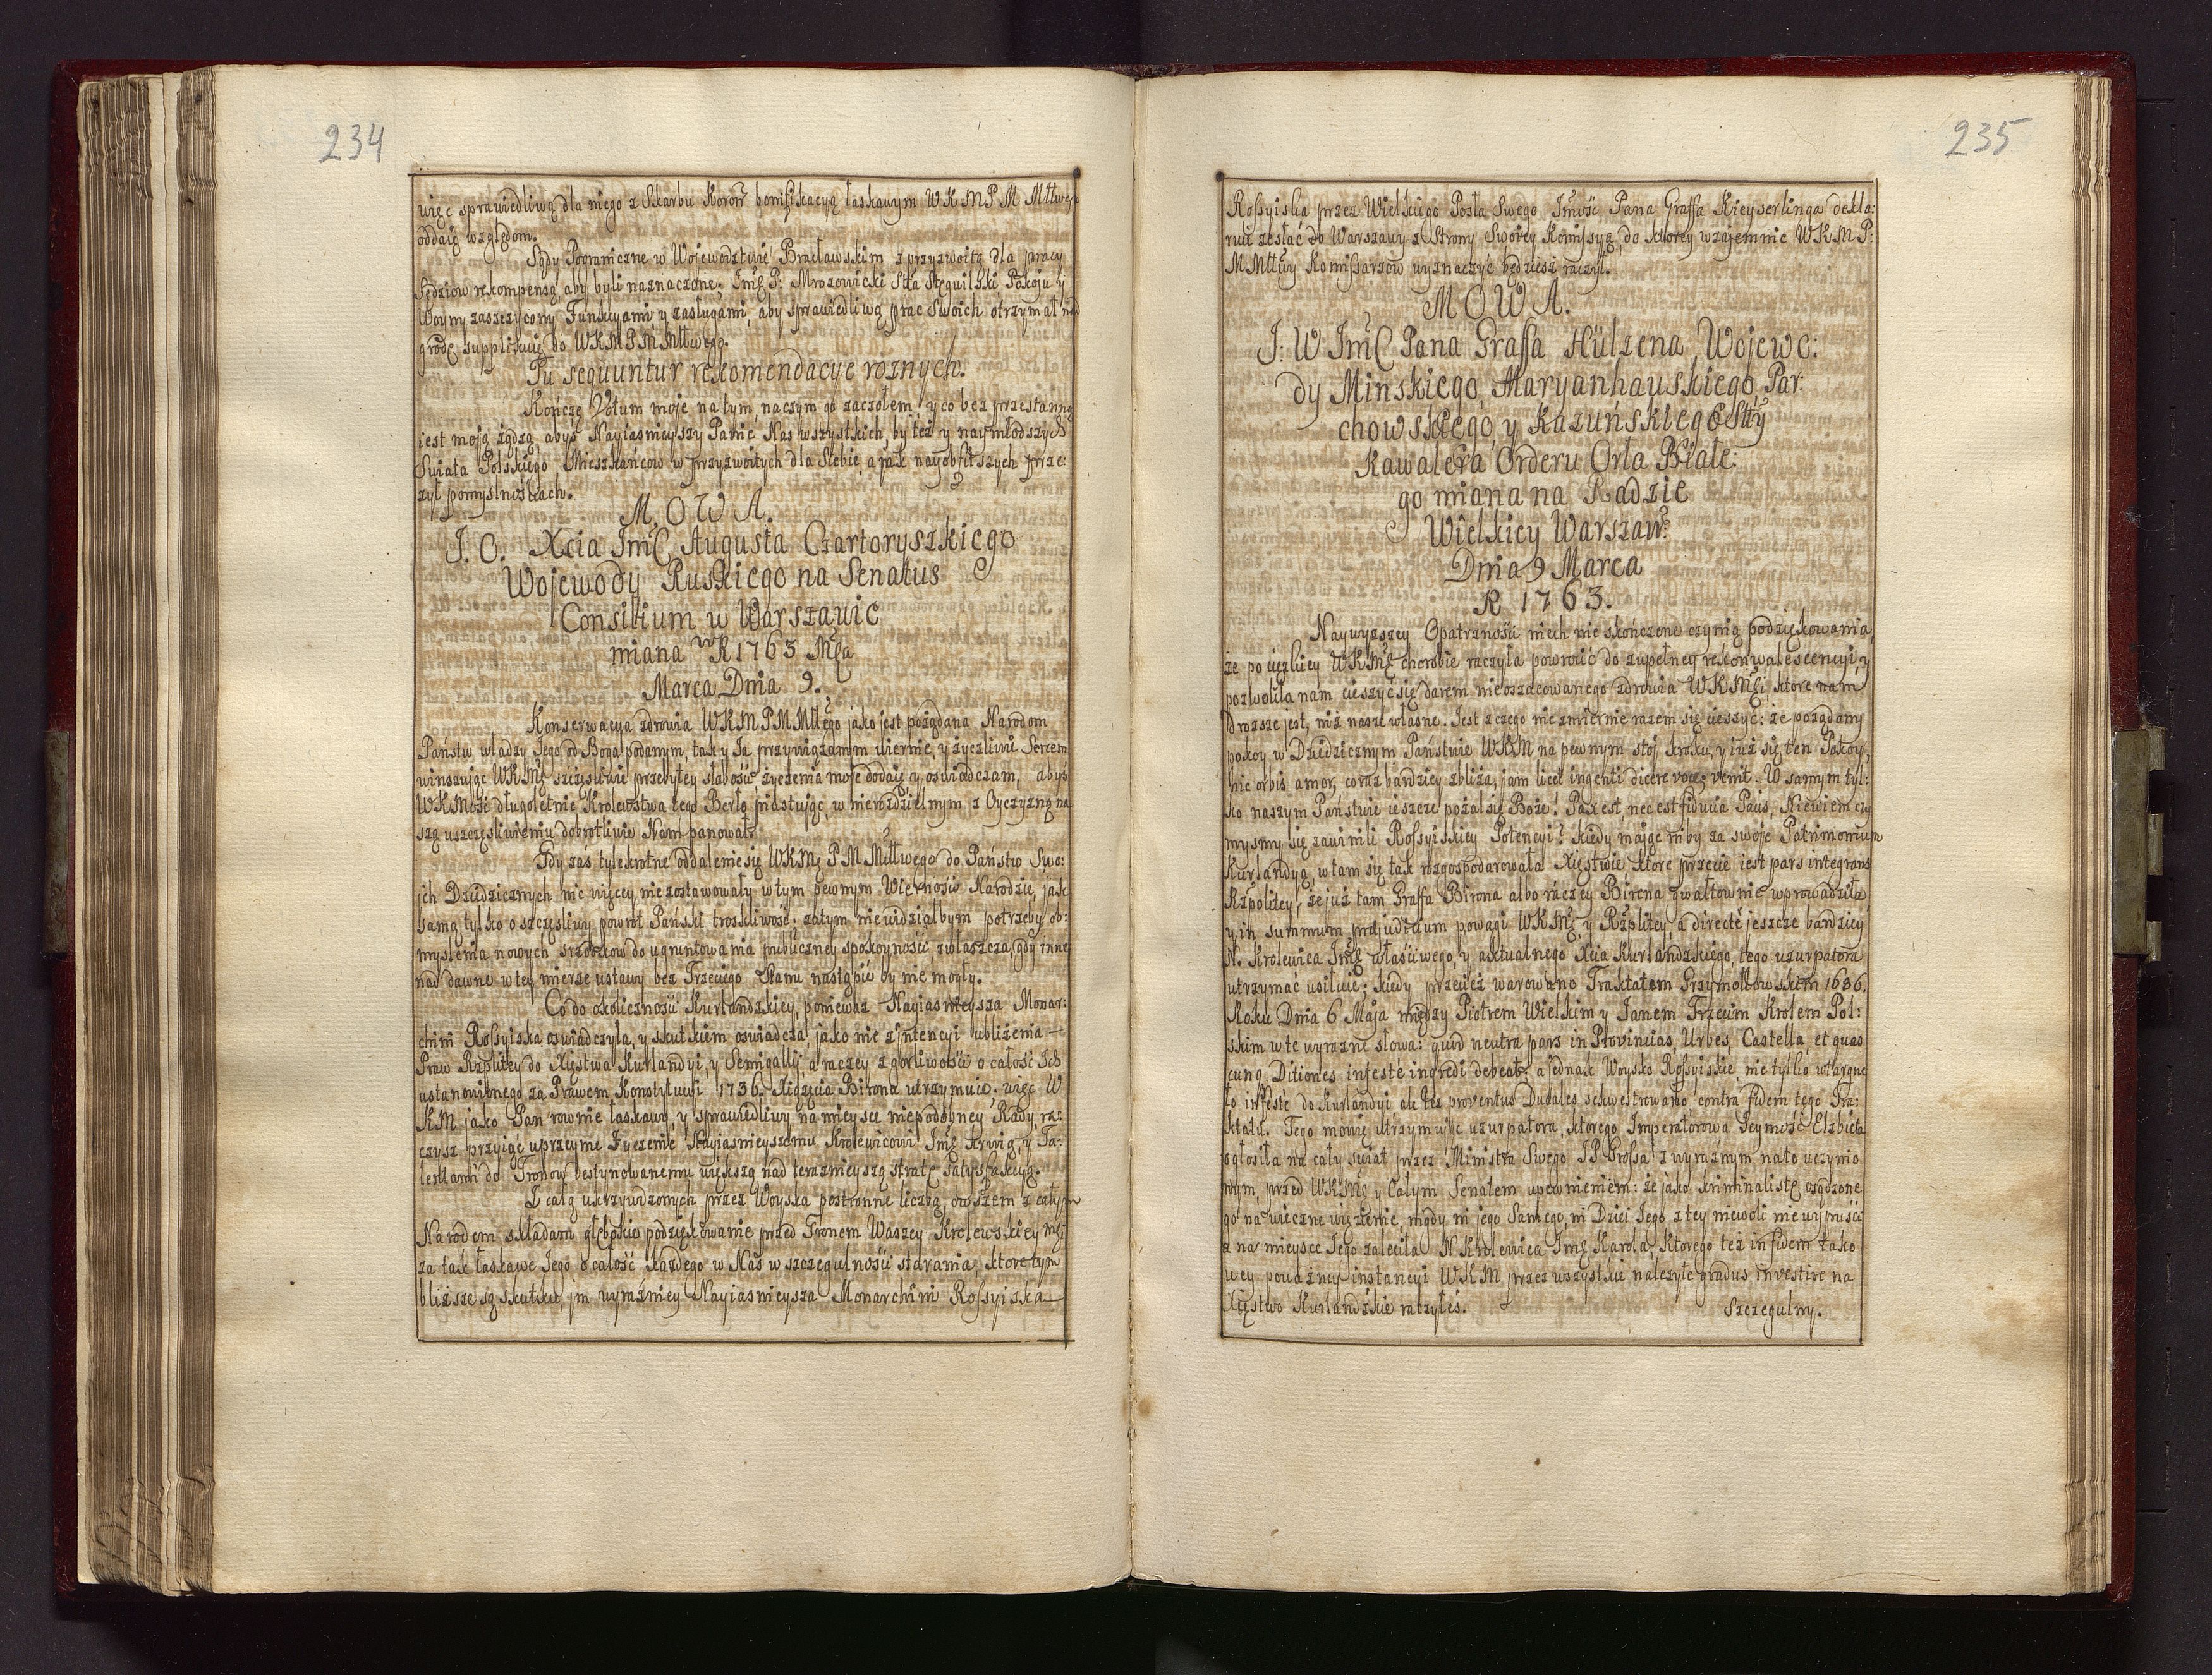 234
więc sprawiedliwą dla niego z Skarbu Koron bonifikacyą łaskawym W K M P M Młłwego
oddaię względom.
Sądy Pograniczne w Wojewodztwie Bracławskim z przyzwoitą dla pracy
Sędziow rekompensą aby byli naznaczone; Imę P: Mrozowicki Stta Stęguilski, Pokoju y
Woyny zaszczycony Funkcyami, y zasługami, aby sprawiedliwą prac Swoich otrzymał nad
grodę supplikuię do WKMPM Młłwego.
Tu sequuntur rekomendacye roznych.
Kończę Votum moje na tym, na czym go zacząłem, y co bez przestanną
jest moją żądzą, abyś Nayiasnieyszy Panie Nas wszystkich, by też y naymłodszych
Swiata Polskiego Mieszkańcow w przyzwoitych dla Siebie, a jak nayobfitszych prze:
żył pomyslnościach.
M O W A.
J. O. Xcia Imć Augusta Czartoryszkiego
Wojewody Ruskiego na Senatus
Consilium w Warszawie
miana w R 1763 Mca
Marca Dnia 9.
Konserwacya zdrowia WKMPM Młłgo jako jest pożądana Narodom
Państw władzy Jego od Boga podanym, tak y Ja przywiązanym wiernie, y życzliwie Sercem
winszując WKMę szczęsliwie przebytey słabości życzenia moje dodaię y oswiadczam, abyś
WKMość długoletnie Krolewstwa tego Berło piastując, w nierozdzielnym z Oyczyzną na
szą uszczęsliwieniu dobrotliwie Nam panował.
Gdy zaś tylekrotne oddalenie się WKMę PM Miłłwego do Państw Swo:
ich Dziedzicznych nic więcey nie zostawowały w tym pewnym Wierności Narodzie, jak
samą tylko o szczęsliwy powrot Pański troskliwość. zatym nie widziałbym potrzeby ob:
myslenia nowych srzodkow do ugruntowania publiczney spokoyności, zwłaszcza, gdy inne
nad dawne w tey mierze ustawy bez Trzeciego Stanu nastąpić by nie mogły.
Co do okoliczności Kurlandzkiey, ponieważ Nayiasnieysza Monar:
chini Rossyiska, oswiadczyła, y skutkiem oswiadcza, jako nie z intencyi ubliżenia
Praw Rzplitey do Xięstwa Kurlandyi, y Semigallij, a raczey z gorliwości o całość Ich
ustanowionego za Prawem Konstytucyi 1736. Xiążęcia Birona utrzymuie. więc W
KM jako Pan rownie łaskawy, y sprawiedliwy na mieysce niepodobney Rady, ra:
czysz przyiąć uprzeyme Życzenie Nayiasnieyszemu Krolewicowi Imę krwią, y Ta:
lentami do Tronow destynowanemu większą nad teraznieyszą stratę satysfakcyą.
Z całą ukrzywdzonych przez Woyska postronne liczbą, owszem z całym
Narodem składam głębokie podziękowanie przed Tronem Waszey Krolewskiey Mci
za tak łaskawe Jego o całość każdego w Nas w szczegulności starania, ktore tym
bliższe są skutku, im wyrażniey Nayiasnieysza Monarchini Rossyiska
235
Rossyiska przez Wielkiego Posła Swego Imość Pana Graffa Kieyserlinga dekla:
ruie zesłać do Warszawy z Strony Swoiey Komissyą, do ktorey wzajemnie WKMP:
M Młłwy Komissarzow wyznaczyć będziesz raczył.
M O W A.
J: W Imć Pana Graffa Hülzena Wojewo:
dy Minskiego, Maryanhauskiego, Par:
chowskiego, y Kazuńskiego Stty
Kawalera Orderu Orła Białe:
go miana na Radzie
Wielkiey Warszaw:
Dnia 9 Marca
R 1763.
Naywyzszey Opatrzności niech nie skończone czynią podziękowania,
że po cięzkiey WKMę chorobie raczyła powrocić do zupełney rekonwalescencyi, y
pozwoliła nam cieszyć się darem nieoszacowanego zdrowia WKMci ktore nam
drozsze jest, niż nasze własne. Jest z czego niezmiernie razem się cieszyć: że pożądany
pokoy w Dziedzicznym Państwie WKM na pewnym stoj kroku, y już się ten Pokoy,
hic orbis amor, coraz bardziey zbliża, jam licet ingenti dicere voce, venit. W samym tyl:
ko naszym Państwie ieszcze pożal się Boże! Pax est nec est fiducia Pacis, Niewiem czy
mysmy się zawinili Rossyiskiey Potencyi? kiedy mając niby za swoje Patrimonium
Kurlandyą, w tam się tak rozgospodarowała Xięstwie, ktore przecie jest pars integrans
Rzpolitey, że już tam Graffa Birona albo raczey Birena gwałtownie wprowadziła
y, in summum præjudicium powagi WKMę, y Rzplitey a directe jeszcze bardziey
N. Krolewica Imę własciwego, y aktualnego Xcia Kurlandzkiego, tego uzurpatora
utrzymać usiłuie; kiedy przecież warowano Traktatem Grzymołtowskim 1686.
Roku Dnia 6 Maja między Piotrem Wielkim y Janem Trzecim Krolem Pol:
skim w te wyrazne słowa: quod neutra pars in Provincias, Urbes, Castella, et quas
cunq Ditiones infeste ingredi debeat, a jednak Woysko Rossyiskie nie tylko wtargne
ło infeste do Kurlandyi ale też proventus Ducales sekwestrowano contra fidem tego Tra:
ktatu. Tego mowię utrzymując uzurpatora, ktorego Imperatorowa Jeymość Elżbieta
ogłosiła na cały swiat przez Ministra Swego JP Grossa z wyraźnym na to uczynio
nym, przed WKMę y Całym Senatem upewnieniem: że jako kriminalistę osądzone
go na wieczne więzienie, nigdy ni jego Samego, ni Dzieci Jego z tey niewoli nie wypuści
a na mieysce Jego zaleciła N Krolewica Imę Karola, ktorego też in fidem tako
wey poważney instancyi WKM przez wszystkie należyte gradus investire na
Xięstwo Kurlandzkie raczyłeś.
Szczegulny.